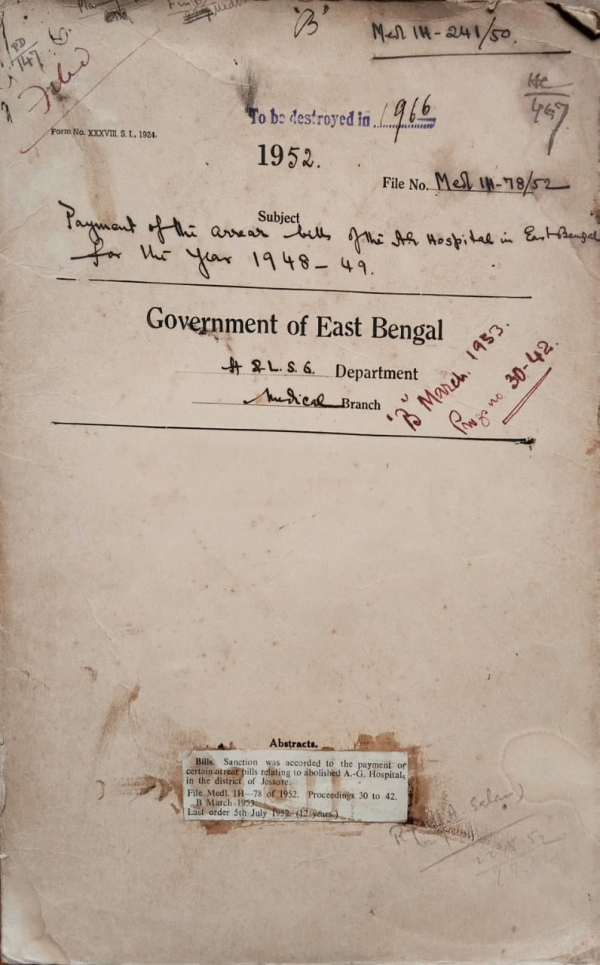 "B"
Medl 1H-241/50.
PD
147
Filed
HC
467
Form No. XXXVIII. S. I., 1924.
To be destroyed in 1966
1952.
File No. Medl 1H-78/52
Subject
Payment of the arrear bills of the AG Hospital in East Bengal
for the year 1948-49.
Government of East Bengal
H & L. S. G. Department
Medical Branch
"B" March. 1953.
Progs no 30-42.
Abstracts.
Bills. Sanction was accorded to the payment of
certain arrear bills relating to abolished A.-G. Hospital,
in the district of Jessore.
File Medl. 1H-78 of 1952. Proceedings 30 to 42.
B March 1953.
Last order 5th July 1952. (12 years.)
Salam)
52